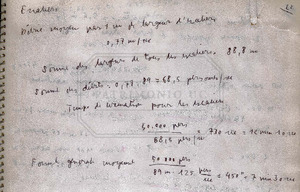 Escaliers
Débit moyen par 1 m de largeur d'escaliers
0,77 m/sec
Somme des largeurs de tous les escaliers 88,8 m
Somme des débits. 0,77 . 89 = 68,5 pers/sec
Temps de circulation pour les escaliers
50.000 pers
88,8 pers/sec = 730 sec = 12 min 10 sec
Formule général moyens 50 000 pers
89 m . 1,25 pers/sec = 450" = 7 min 30 sec
PATRIMONIO UC